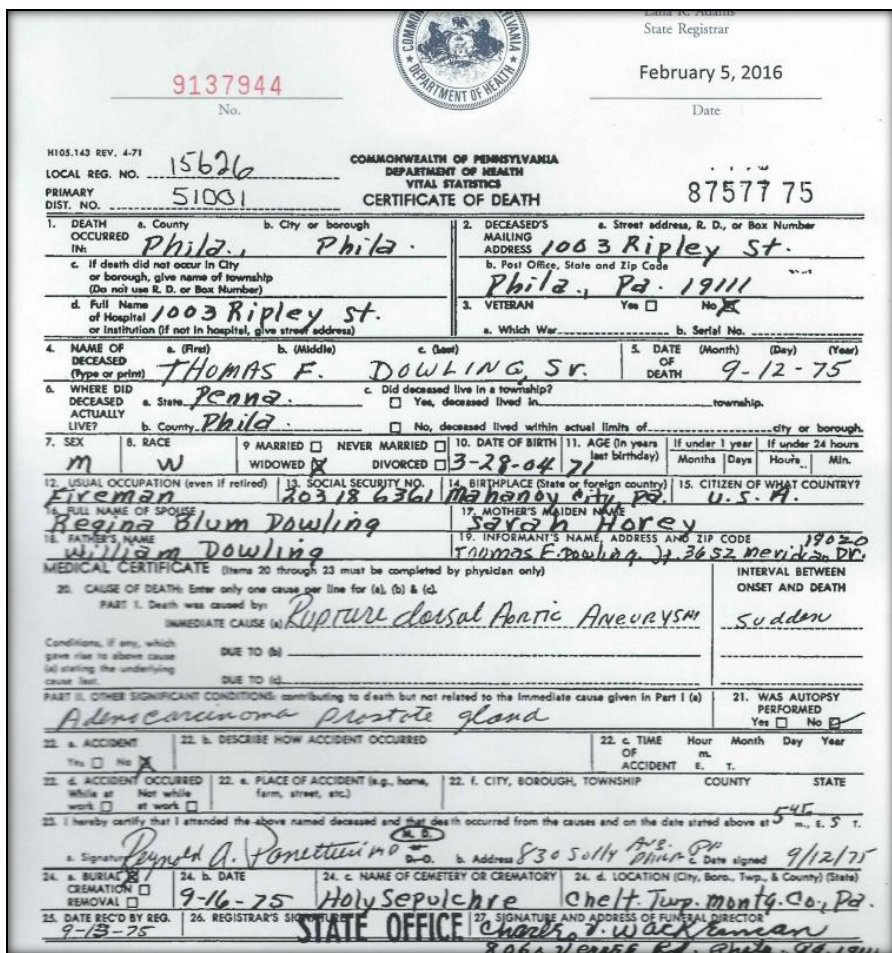 COMMONWEALTH OF PENNSYLVANIA
DEPARTMENT OF HEALTH
Lana R. Adams
State Registrar
9137944
No.
February 5, 2016
Date
H105.143 REV. 4-71
LOCAL REG. NO. 15626
PRIMARY
DIST. NO. 51001
COMMONWEALTH OF PENNSYLVANIA
DEPARTMENT OF HEALTH
VITAL STATISTICS
CERTIFICATE OF DEATH
87577 75
1. DEATH OCCURRED IN: a. County Phila., b. City or borough Phila.
c. If death did not occur in City or borough, give name of township (Do not use R. D. or Box Number)
d. Full Name of Hospital or Institution (if not in hospital, give street address) 1003 Ripley St.
2. DECEASED'S MAILING ADDRESS a. Street address, R. D., or Box Number 1003 Ripley St.
b. Post Office, State and Zip Code Phila., Pa. 19111
3. VETERAN Yes No
a. Which War b. Serial No.
4. NAME OF DECEASED (Type or print) a. (First) b. (Middle) c. (Last) THOMAS F. DOWLING, Sr.
5. DATE OF DEATH (Month) (Day) (Year) 9-12-75
6. WHERE DID DECEASED ACTUALLY LIVE? a. State Penna.
b. County Phila
c. Did deceased live in a township?
Yes, deceased lived in township.
No, deceased lived within actual limits of city or borough.
7. SEX M
8. RACE W
9 MARRIED NEVER MARRIED
WIDOWED DIVORCED
10. DATE OF BIRTH 3-28-04
11. AGE (In years last birthday) 71
If under 1 year Months Days
If under 24 hours Hours Min.
12. USUAL OCCUPATION (even if retired) Fireman
13. SOCIAL SECURITY NO. 203 18 6361
14. BIRTHPLACE (State or foreign country) Mahanoy City, Pa.
15. CITIZEN OF WHAT COUNTRY? U.S.A.
16. FULL NAME OF SPOUSE Regina Blum Dowling
17. MOTHER'S MAIDEN NAME Sarah Horey
18. FATHER'S NAME William Dowling
19. INFORMANT'S NAME, ADDRESS AND ZIP CODE 19020
Thomas F. Dowling, Jr. 3652 Meridian Dr.
MEDICAL CERTIFICATE (Items 20 through 23 must be completed by physician only)
INTERVAL BETWEEN ONSET AND DEATH
20. CAUSE OF DEATH: Enter only one cause per line for (a), (b) & (c).
PART I. Death was caused by:
IMMEDIATE CAUSE (a) Rupture dorsal Aortic Aneurysm Sudden
Conditions, if any, which gave rise to above cause (a) stating the underlying cause last.
DUE TO (b)
DUE TO (c)
PART II. OTHER SIGNIFICANT CONDITIONS: contributing to death but not related to the immediate cause given in Part I (a)
Adenocarcinoma Prostate gland
21. WAS AUTOPSY PERFORMED
Yes No
22. a. ACCIDENT
Yes No
22. b. DESCRIBE HOW ACCIDENT OCCURRED
22. c. TIME OF ACCIDENT Hour Month Day Year
m. E. T.
22. d. ACCIDENT OCCURRED
While at work Not while at work
22. e. PLACE OF ACCIDENT (e.g., home, farm, street, etc.)
22. f. CITY, BOROUGH, TOWNSHIP COUNTY STATE
23. I hereby certify that I attended the above named deceased and that death occurred from the causes and on the date stated above at 545 m., E. S T.
a. Signature Reynold A. M. D. D. O. b. Address 830 Solly Ave. Phila Pa c. Date signed 9/12/75
24. a. BURIAL
CREMATION
REMOVAL
24. b. DATE 9-16-75
24. c. NAME OF CEMETERY OR CREMATORY Holy Sepulchre
24. d. LOCATION (City, Boro., Twp., & County) (State) Chelt. Twp. Montg. Co., Pa.
25. DATE REC'D BY REG. 9-13-75
26. REGISTRAR'S SIGNATURE
STATE OFFICE
27. SIGNATURE AND ADDRESS OF FUNERAL DIRECTOR
Charles J. Wackerman